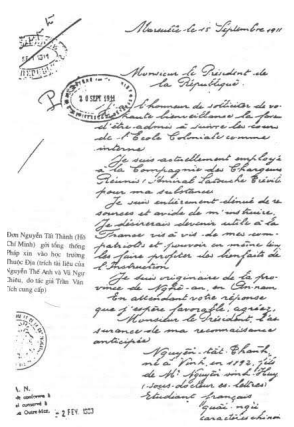 Marseille le 15 Septembre 1911
Monsieur le Président de
la République
20 SEPT 1911
l'honneur de solliciter de vo-
haute bienveillance la faveur
d'être admis à suivre les cours
de l'Ecole Coloniale comme
interne
Je suis actuellement employé
à la Compagnie des Chargeurs
Réunis: Amiral Latouche Tréville
pour ma subsistance
Je suis entièrement dénué de res
sources et avide de m'instruire.
Je désirerais devenir utile à la
France vis à vis de mes com-
patriotes et pouvoir en même temps
les faire profiter des bienfaits de
l'Instruction
Je suis originaire de la pro-
vince de Nghê-an, en Annam
En attendant votre réponse
que j'espère favorable, agréez,
Monsieur le Président, l'as
surance de ma reconnaissance
anticipée
Nguyên tât Thành,
né à Vinh, en 1892, fils
de Mr Nguyên sinh Huy
(sous-docteur ès-lettres)
Etudiant français,
quôc-ngu,
caractères chinois
Đơn Nguyễn Tất Thành (Hồ
Chí Minh) gửi tổng thống
Pháp xin vào học trường
Thuộc Địa (trích tài liệu của
Nguyễn Thế Anh và Vũ Ngự
Chiêu, do tác giả Trần Văn
Tích cung cấp)
A. N.
conforme à
conservé à
Outre-Mer.
- 2 FEV. 1983